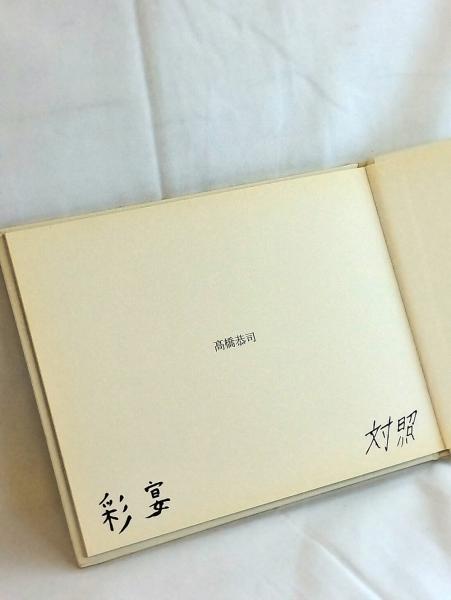 髙橋恭司
対照
彩宴